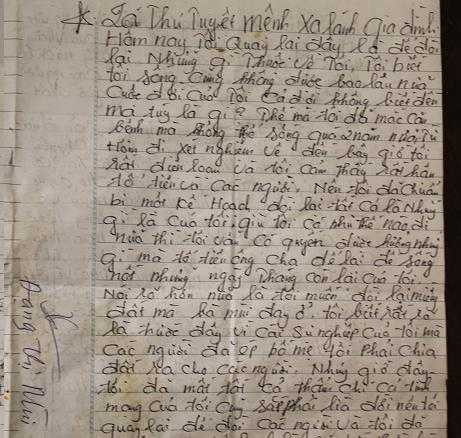 * Lá Thư Tuyệt mệnh xa lánh Gia đình
Hôm nay, Tôi Quay lại đây, là để đòi
lại Những gì Thuộc về Tôi, Tôi biết
tôi sống cũng không được bao lâu nữa
Cuộc đời của Tôi Cả đời không biết đến
ma túy là gì? Thế mà tôi đã mắc căn
bệnh mà không thể sống qua 2 năm nữa, Từ
Hôm đi xét nghiệm về đến bây giờ tôi
rất điên loạn và tôi cảm thấy rất hận
tổ tiên và các người. Nên tôi đã chuẩn
bị một kế Hoạch đòi lại tất cả là Những
gì là của tôi, giù tôi có như thế nào đi
nữa thì tôi vẫn có quyền được hưởng những
gì mà tổ tiên ông cha để lại để sống
nốt những ngày tháng còn lại của tôi.
Nói rõ hơn nữa là tôi muốn đòi lại miếng
đất mà bà mùi đay ở, tôi biết rất rõ
là trước đây vì cái sự nghiệp của tôi mà
các người đã ép bố mẹ tôi phải chia
đất ra cho các người. Nhưng giờ đây
tôi đã mất tất cả thậm chí cả tính
mạng của tôi cũng sắp phải lìa đời nên tôi
quay lại để đòi các người và tôi đã